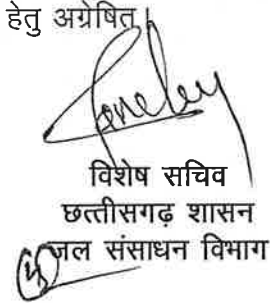 हेतु अग्रेषित।
विशेष सचिव
छत्तीसगढ़ शासन
जल संसाधन विभाग